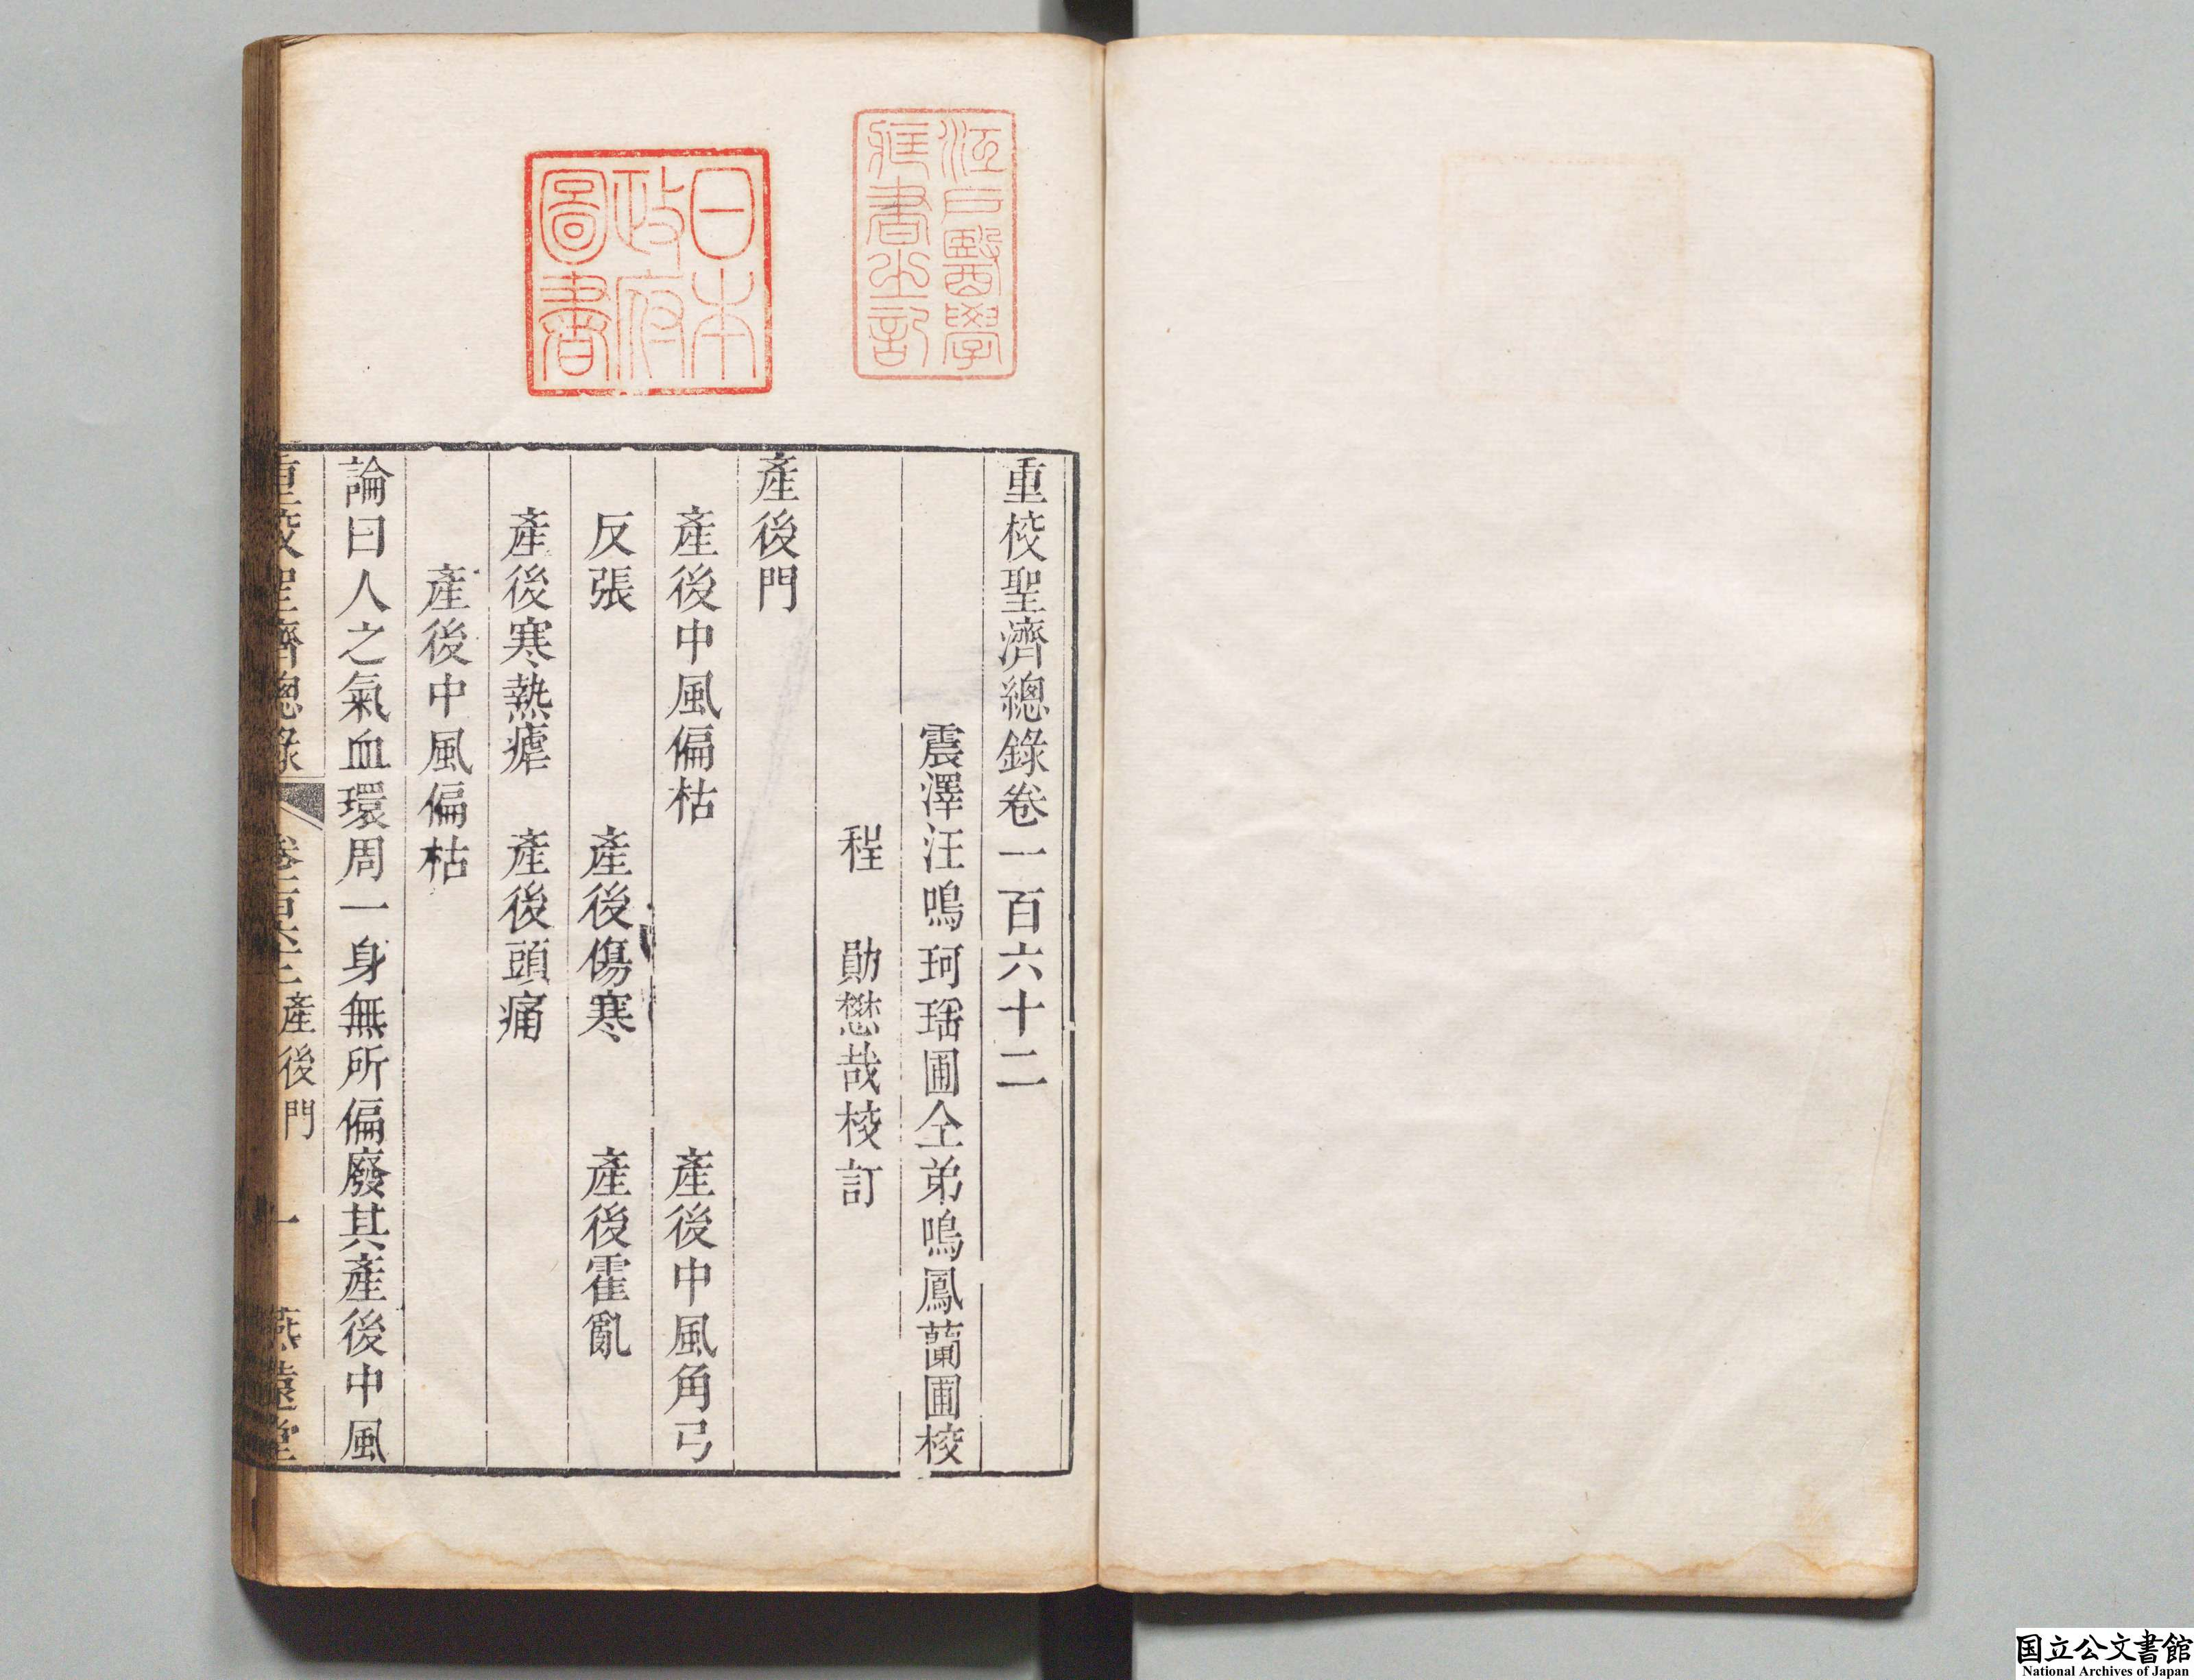 重校聖濟總錄卷一百六十二
震澤汪鳴珂瑤圃仝弟鳴鳳蘭圃校
程　勛懋哉校訂
產後門
產後中風偏枯　產後中風角弓
反張　產後傷寒　產後霍亂
產後寒熱瘧　產後頭痛
產後中風偏枯
論曰人之氣血環周一身無所偏廢其產後中風
重校聖濟總錄　卷一百六十二產後門　一　燕遠堂
江戶醫學
藏書之記
日本
政府
圖書
国立公文書館
National Archives of Japan